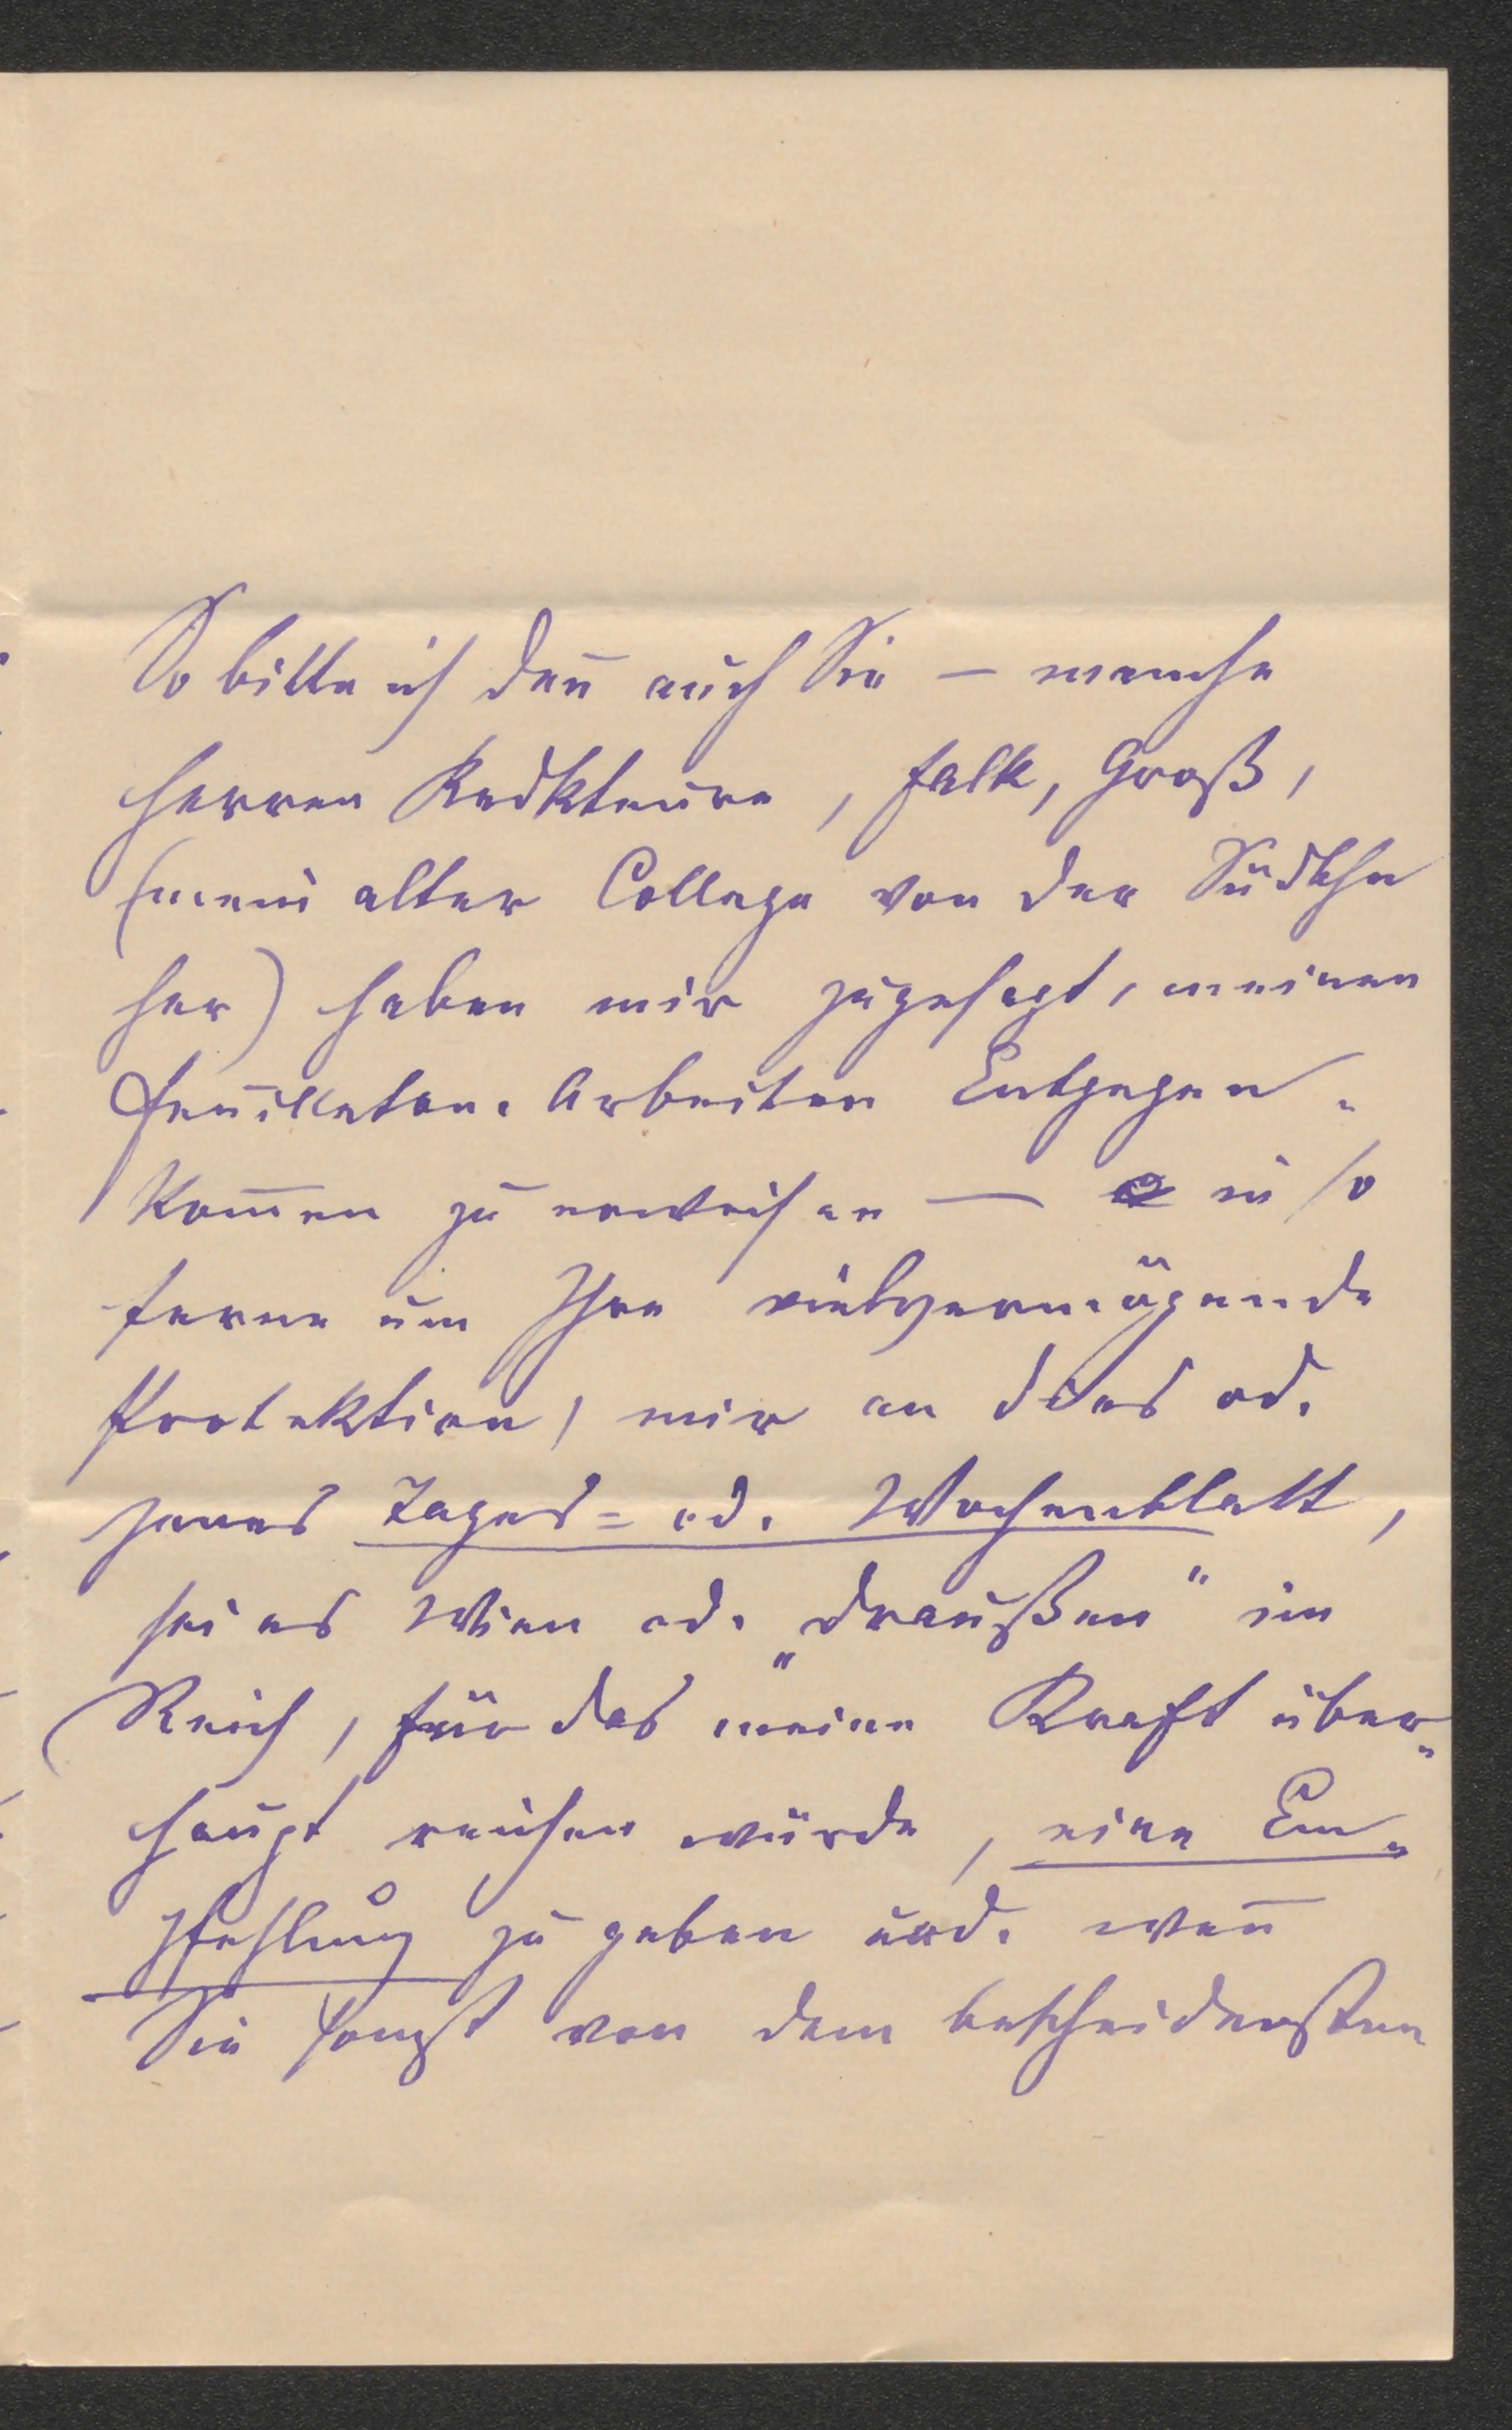 So bitte ich deñ auch Sie – manche
Herren Redkteure, Falk, Groß,
(mein alter College von der Südbhn
her) haben mir zugesagt, meinen
Feuilleton-Arbeiten Entgegen-
kom̄en zu erweisen — in so
ferne um Ihre vielvermögende
Protektion, mir an dies od.
jenes Tages= od. Wochenblatt,
sei es Wien od. „draußen" im
Reich, für das meine Kraft über-
haupt reichen würde, eine Em-
pfehlung zu geben und. weñ
Sie sonst von dem bescheidensten